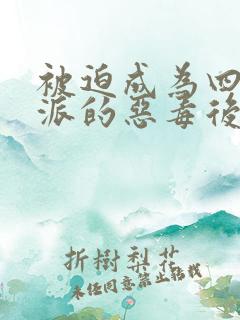 被迫成為四
派的惡毒後
折樹梨花
未经同意禁止转载